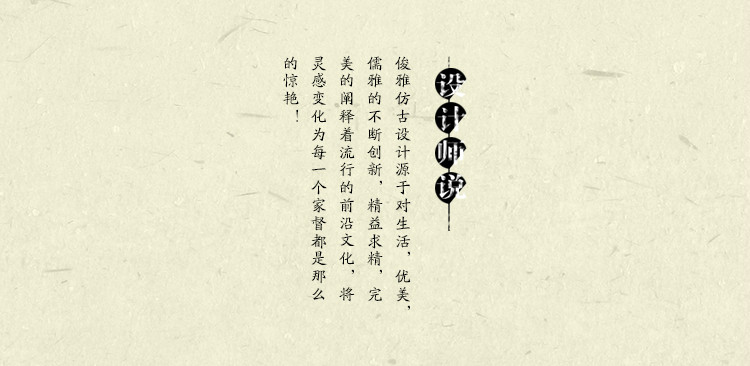 设计师说
俊雅仿古设计源于对生活，优美，
儒雅的不断创新，精益求精，完
美的阐释着流行的前沿文化，将
灵感变化为每一个家督都是那么
的惊艳！